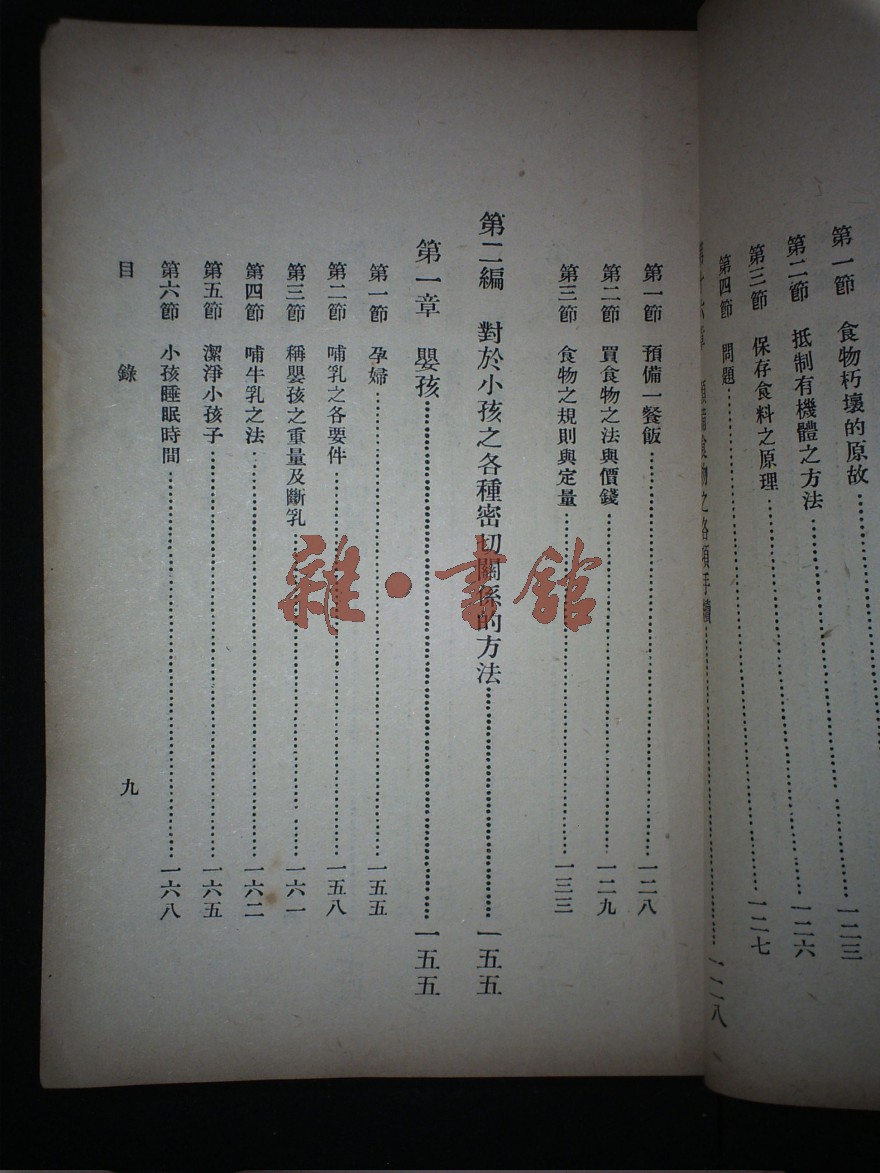 第一節　食物朽壞的原故……一二三
第二節　抵制有機體之方法……一二六
第三節　保存食料之原理……一二七
第四節　問題……
預備食物之各項手續……一二八
第一節　預備一餐飯……一二八
第二節　買食物之法與價錢……一二九
第三節　食物之規則與定量……一三三
第二編　對於小孩之各種密切關係的方法……一五五
第一章　嬰孩……一五五
第一節　孕婦……一五五
第二節　哺乳之各要件……一五八
第三節　稱嬰孩之重量及斷乳……一六一
第四節　哺牛乳之法……一六二
第五節　潔淨小孩子……一六五
第六節　小孩睡眠時間……一六八
目　錄
九
雜·書館